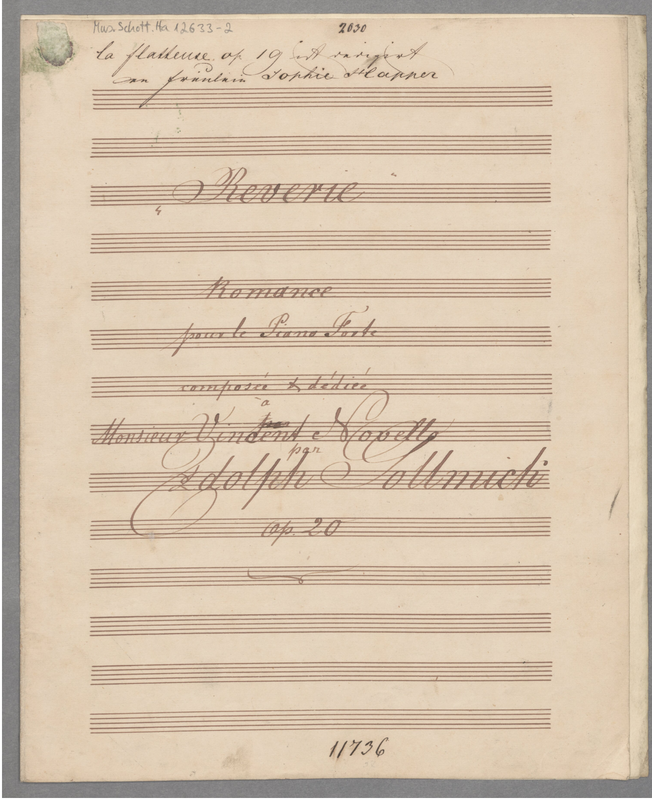 Mus. Schott. Ha 12633-2
2030
la flatteuse op. 19 ist dedizirt
an Fräulein Sophie Klapper
„Reverie“
Romance
pour le Piano Forte
composée & dédiée
à
Monsieur Vincent Novello
par
Adolph Gollmick
op. 20
11736